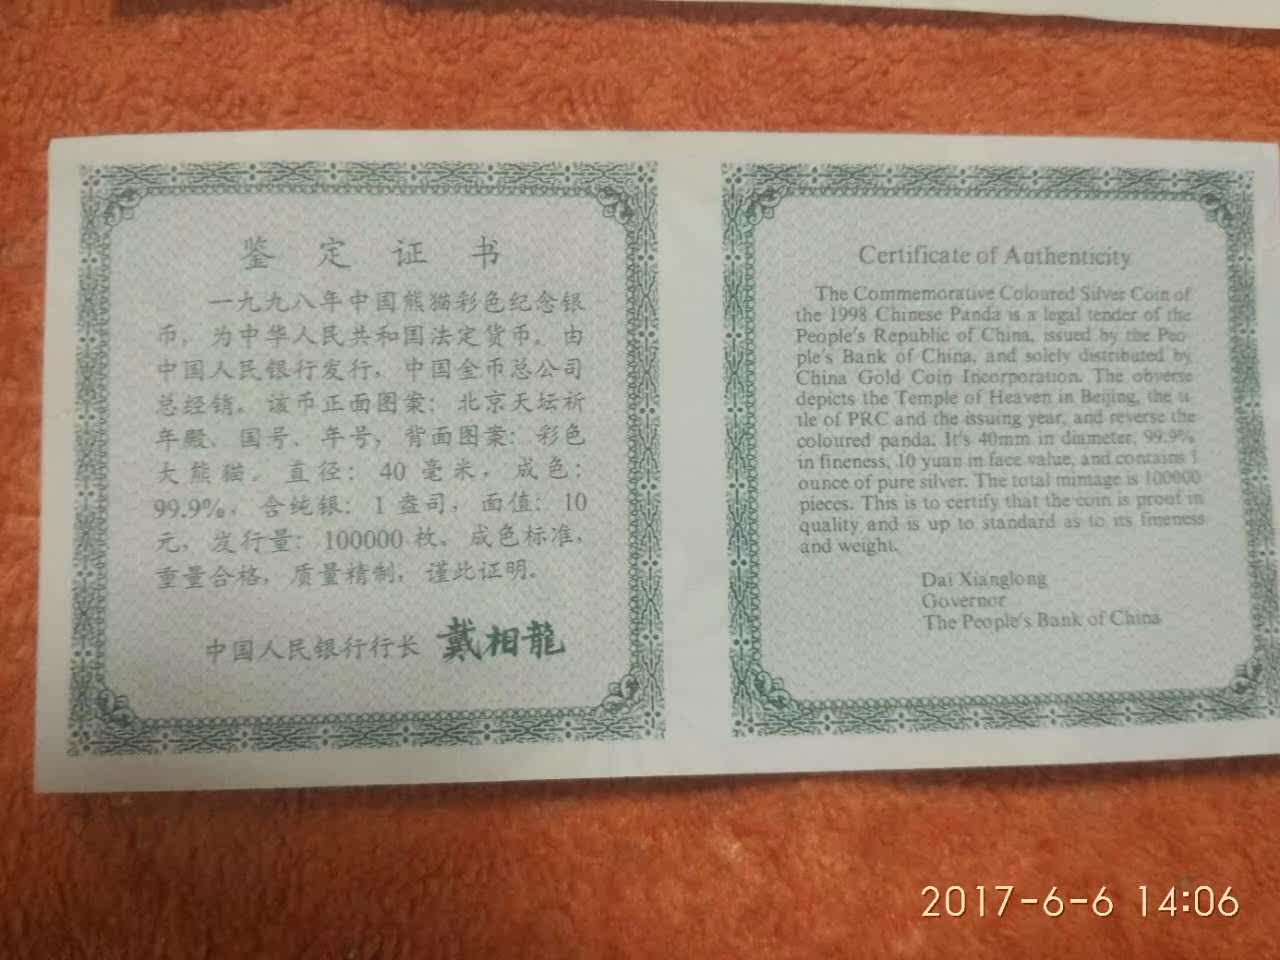 鉴定证书
一九九八年中国熊猫彩色纪念银
币，为中华人民共和国法定货币。由
中国人民银行发行，中国金币总公司
总经销。该币正面图案：北京天坛祈
年殿、国号、年号，背面图案：彩色
大熊猫。直径：40毫米，成色：
99.9%，含纯银：1盎司，面值：10
元，发行量：100000枚。成色标准，
重量合格，质量精制，谨此证明。
中国人民银行行长 戴相龍
Certificate of Authenticity
The Commemorative Coloured Silver Coin of
the 1998 Chinese Panda is a legal tender of the
People's Republic of China, issued by the Peo-
ple's Bank of China, and solely distributed by
China Gold Coin Incorporation. The obverse
depicts the Temple of Heaven in Beijing, the ti-
tle of PRC and the issuing year, and reverse the
coloured panda. It's 40mm in diameter, 99.9%
in fineness, 10 yuan in face value, and contains 1
ounce of pure silver. The total mintage is 100000
pieces. This is to certify that the coin is proof in
quality and is up to standard as to its fineness
and weight.
Dai Xianglong
Governor
The People's Bank of China
2017-6-6 14:06